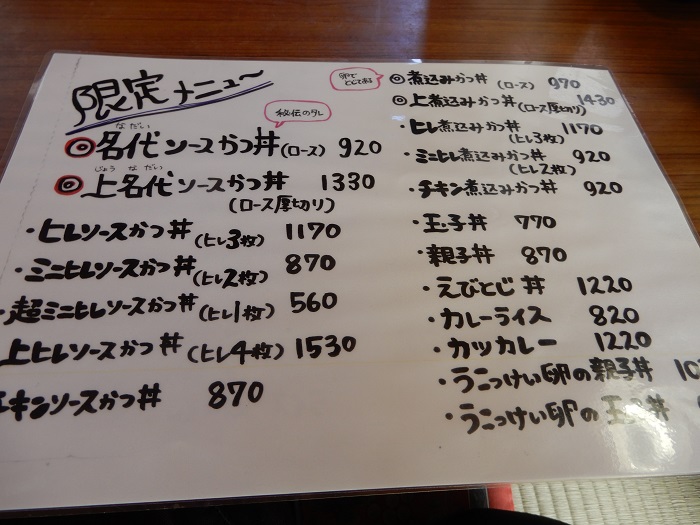 限定メニュー
秘伝のタレ
なだい
◎名代ソースかつ丼(ロース) 920
じょう なだい
◎上名代ソースかつ丼 1330
(ロース厚切り)
・ヒレソースかつ丼(ヒレ3枚) 1170
・ミニヒレソースかつ丼(ヒレ2枚) 870
・超ミニヒレソースかつ丼(ヒレ1枚) 560
上ヒレソースかつ丼(ヒレ4枚) 1530
チキンソースかつ丼 870
卵で
とじてある
◎煮込みかつ丼(ロース) 970
◎上煮込みかつ丼(ロース厚切り) 1430
・ヒレ煮込みかつ丼(ヒレ3枚) 1170
・ミニヒレ煮込みかつ丼(ヒレ2枚) 920
・チキン煮込みかつ丼 920
・玉子丼 770
・親子丼 870
・えびとじ丼 1220
・カレーライス 820
・カツカレー 1220
・うこっけい卵の親子丼
・うこっけい卵の玉子丼